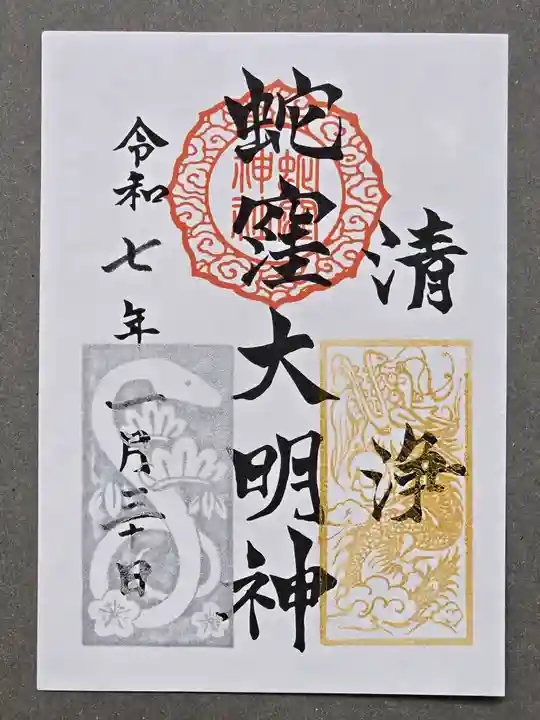 清浄
蛇窪大明神
令和七年一月三十日
蛇窪神社